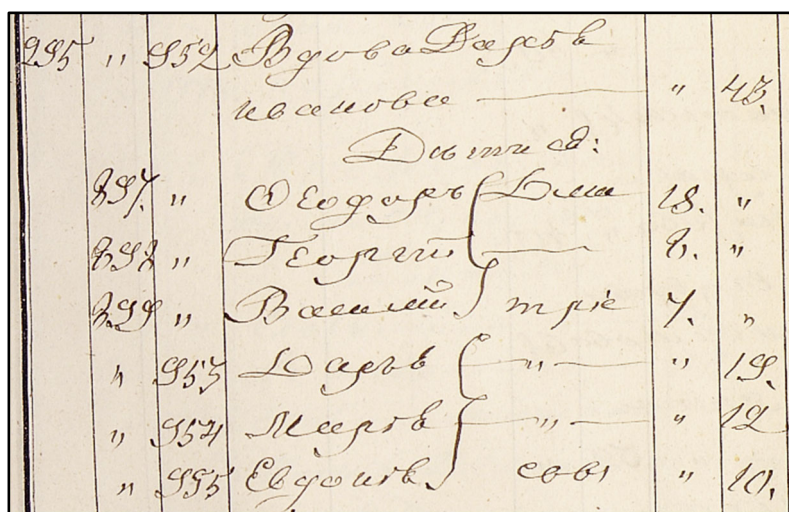 295 " 952 Вдова Дарья
Иванова — " 43.
Дѣти ея:
897. " Ѳеодоръ { Дми 18. "
898 " Георгий — 8. "
899 " Василий } тріе 7. "
" 953 Дарья { — " — " 19.
" 954 Марья — " — " 12
" 955 Евдокия } евы " 10.